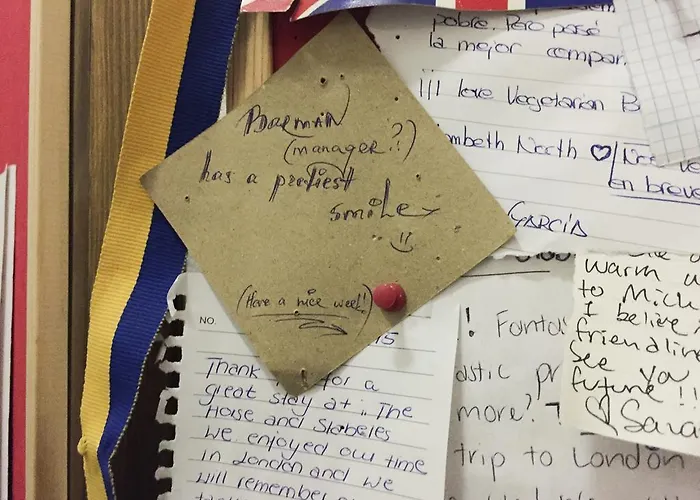 pobre. Pero pasé
la mejor compar.
¡¡¡ love Vegetarian B
mbeth North ♡
en breve
GARCÍA
BARMAN
(manager?)
has a prettiest
smile
(Have a nice week!)
NO.
15
Thank for a
great stay at .. The
Horse and Stabeles
We enjoyed our time
in London and we
will remember
! Fanta
astic pr
more?
trip to London
warm w
to Mich
I believe
friendline
See you
future!!
♡ Sara